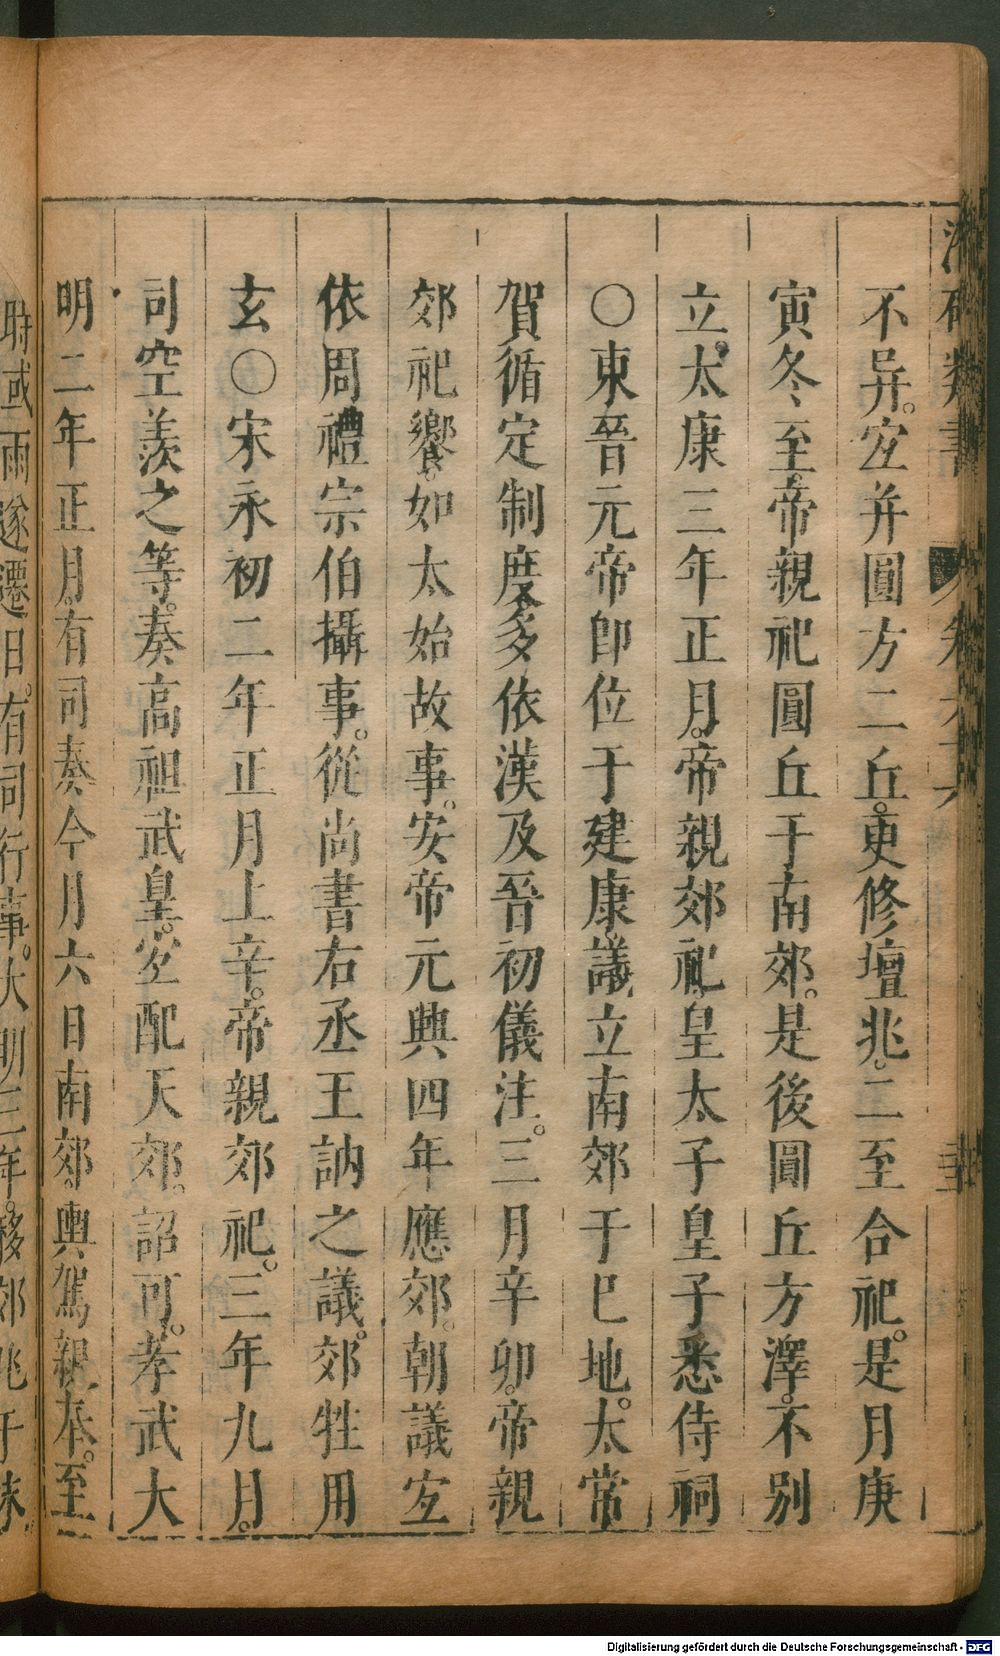 不异。宐并圓方二丘。更修壇兆。二至合祀。是月庚
寅冬至。帝親祀圓丘于南郊。是後圓丘方澤。不别
立。太康三年正月。帝親郊祀。皇太子皇子悉侍祠
〇東晉元帝卽位于建康。議立南郊于巳地。太常
賀循定制度多依漢及晉初儀注。三月辛卯。帝親
郊祀饗。如太始故事。安帝元興四年應郊。朝議宐
依周禮宗伯攝事。從尚書右丞王訥之議。郊牲用
玄〇宋永初二年正月上辛。帝親郊祀。三年九月。
司空羨之等。奏高祖武皇。宐配天郊。詔可。孝武大
明二年正月。有司奏今月六日南郊。輿駕親奉。至
時或雨遂遷日。有司行事。大明三年。移郊兆于秣
Digitalisierung gefördert durch die Deutsche Forschungsgemeinschaft - DFG